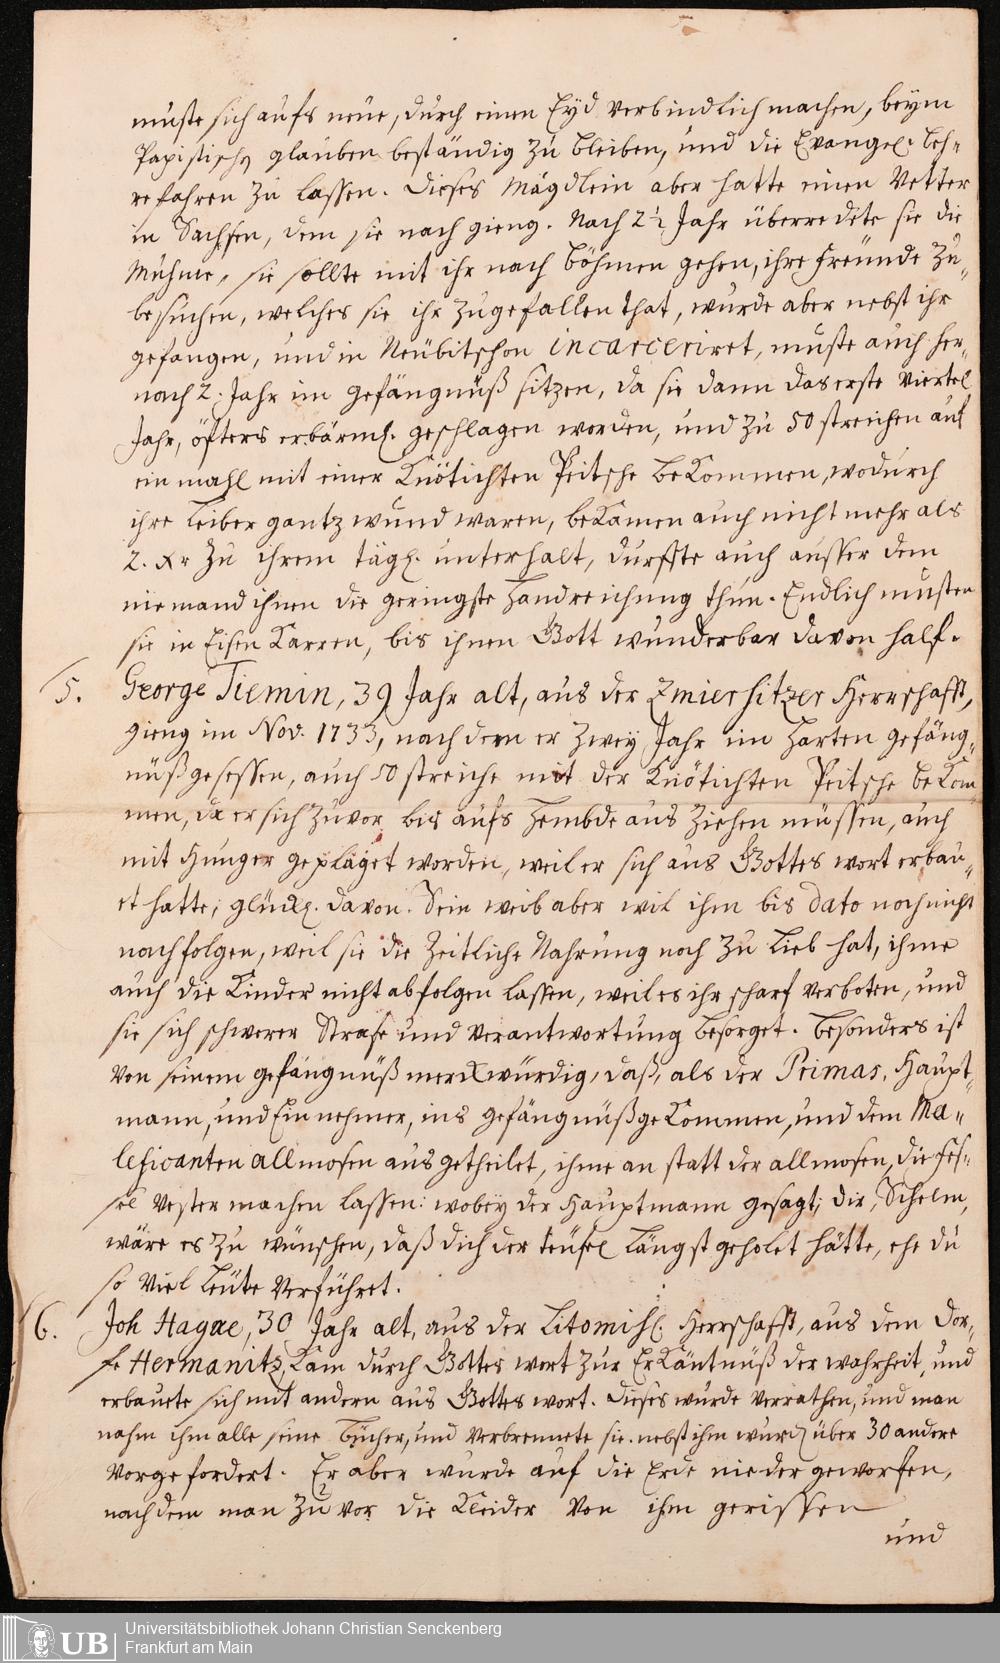 muste sich aufs neue, durch einen Eyd verbindlich machen, beym
Papistischen glauben beständig zu bleiben, und die Evangel. Leh-
re fahren zu lassen. Dieses Mägdlein aber hatte einen Vetter
in Sachsen, dem sie nach gieng. Nach 2½ Jahr überredete sie die
Muhme, sie sollte mit ihr nach Böhmen gehen, ihre Freunde zu-
besuchen, welches sie ihr zugefallen that, wurde aber nebst ihr
gefangen, und in Neubitschon incarceriret, muste auch her-
nach 2. Jahr im gefängnüß sitzen, da sie dann das erste Viertel
Jahr, öfters erbärml. geschlagen worden, und zu 50 streichen auf
ein mahl mit einer Knötichten Peitsche beKommen, wodurch
ihre Leiber gantz wund waren, beKamen auch nicht mehr als
2. Xr zu ihrem tägl. unterhalt, durffte auch ausser dem
niemand ihnen die geringste Handreichung thun. Endlich musten
sie in Eisen Karren, bis ihnen Gott wunderbar davon half.
5. George Tiemin, 39 Jahr alt, aus der Zmierschitzer Herrschafft,
gieng im Nov. 1733, nachdem er zwey Jahr im harten gefäng-
nüß gesessen, auch 50 streiche mit der Knötichten Peitsche beKom-
men, da er sich zuvor bis aufs Hembde aus ziehen müssen, auch
mit Hunger geplaget worden, weil er sich aus Gottes wort erbau-
et hatte, glückl. davon. Sein weib aber wil ihm bis dato noch nicht
nachfolgen, weil sie die Zeitliche Nahrung noch zu lieb hat, ihme
auch die Kinder nicht abfolgen lassen, weil es ihr scharf verboten, und
sie sich schwerer Strafe und Verantwortung besorget. Besonders ist
von seinem gefängnüß merckwürdig, daß, als der Primas, Haupt-
mann, und Einnehmer, ins gefängnüß geKommen, und dem Ma-
leficanten allmosen ausgetheilet, ihme an statt der allmosen, die Fes-
sel Vester machen lassen: wobey der Hauptmann gesagt; Dir, Schelm,
wäre es zu wünschen, daß dich der teufel längst geholet hätte, ehe du
so viel Leute verführet.
6. Joh Hayne, 30 Jahr alt, aus der Litomischl. Herrschafft, aus dem Dor-
fe Hermanitz, Kam durch Gottes wort zur ErKäntnüß der wahrheit, und
erbauete sich mit andern aus Gottes wort. Dieses wurde verrathen, und man
nahm ihm alle seine Bücher, und verbrennete sie. nebst ihm wurden über 30 andere
vorgefordert. Er aber wurde auf die Erde niedergeworfen,
nachdem man zuvor die Kleider von ihm gerissen
und
Universitätsbibliothek Johann Christian Senckenberg
Frankfurt am Main
UB